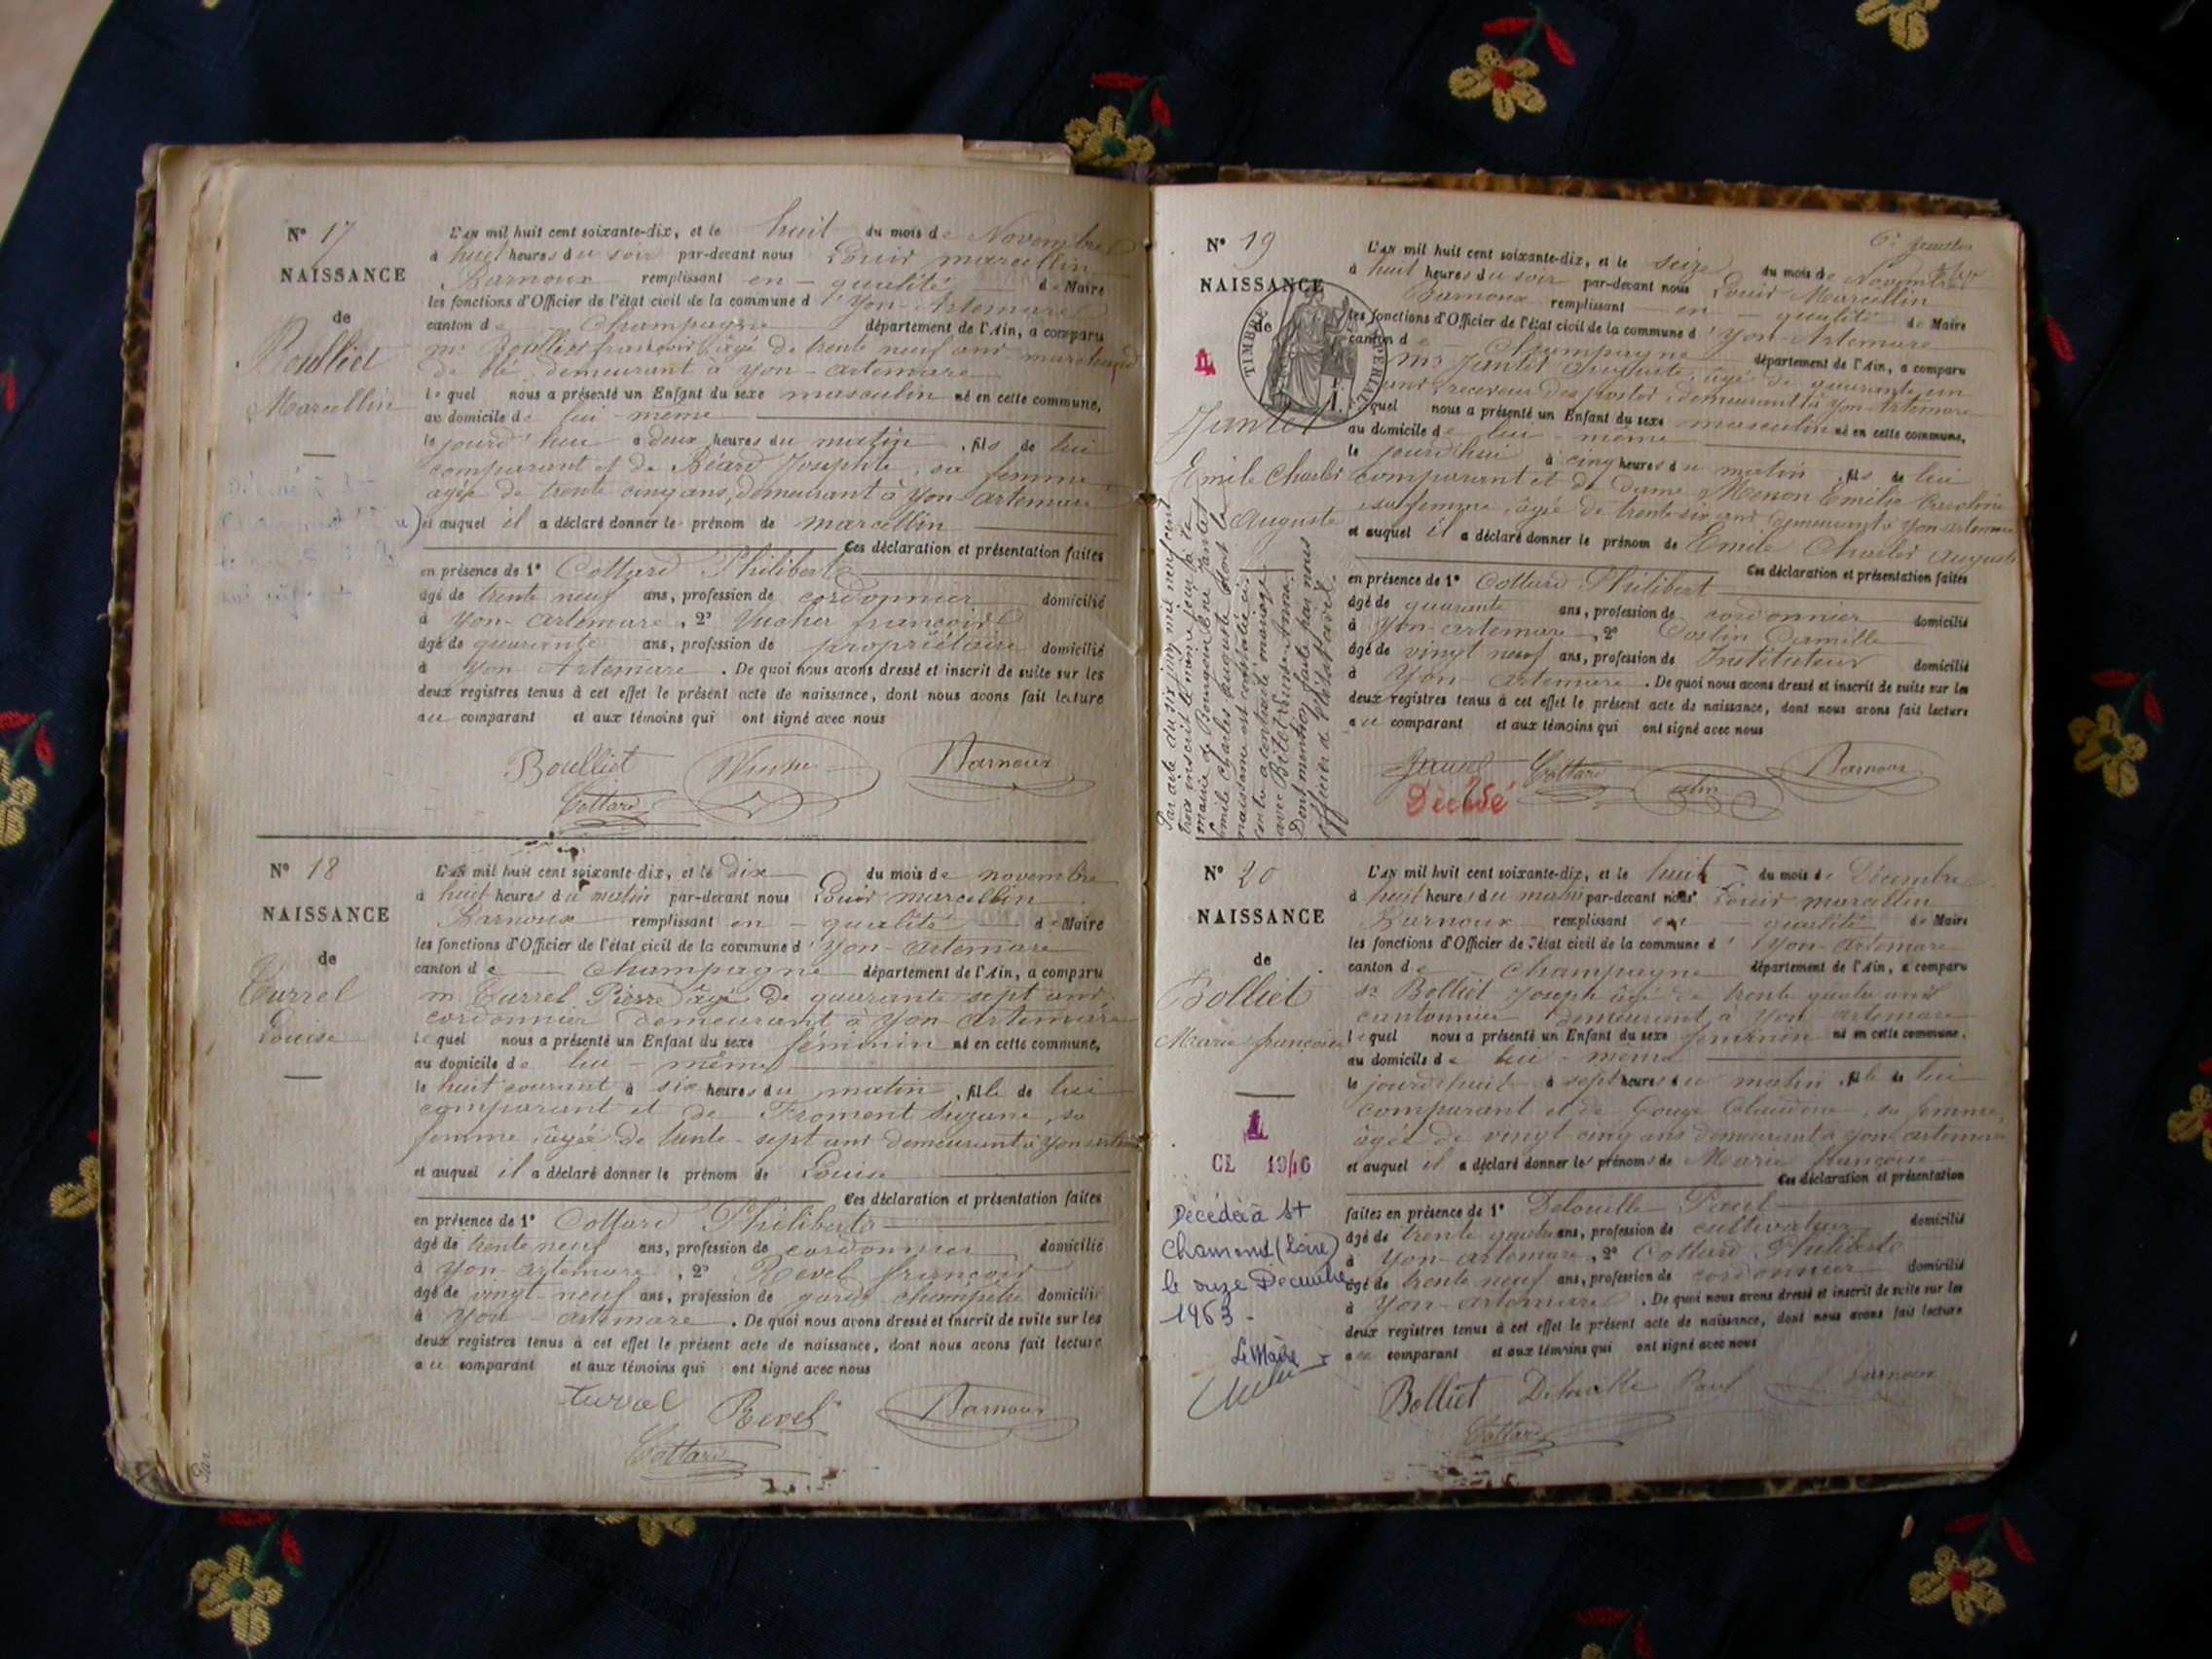 N° 17
NAISSANCE
de
Boulliet
Marcellin
L'AN mil huit cent soixante-dix, et le huit du mois de Novembre
à huit heures du soir par-devant nous Louis marcellin
Barnoux remplissant en qualité de Maire
les fonctions d'Officier de l'état civil de la commune d'Yon-Artemare
canton de Champagne département de l'Ain, a comparu
mr Boulliet françois, âgé de trente neuf ans marchand
de blé demeurant à Yon-artemare
lequel nous a présenté un Enfant du sexe masculin né en cette commune,
au domicile de lui-même
le jourd'hui à deux heures du matin, fils de lui
comparant et de Béard Josephte, sa femme
agée de trente cinq ans, demeurant à Yon-artemare
et auquel il a déclaré donner le prénom de marcellin
Ces déclaration et présentation faites
en présence de 1° Cottard Philibert
âgé de trente neuf ans, profession de cordonnier domicilié
à Yon-artemare, 2° françois
âgé de quarante ans, profession de propriétaire domicilié
à Yon Artemare. De quoi nous avons dressé et inscrit de suite sur les
deux registres tenus à cet effet le présent acte de naissance, dont nous avons fait lecture
au comparant et aux témoins qui ont signé avec nous
Boulliet Barnoux
Cottard
N° 18
NAISSANCE
de
Turrel
Louise
L'AN mil huit cent soixante-dix, et le dix du mois de novembre
à huit heures du matin par-devant nous Louis marcellin
Barnoux remplissant en qualité de Maire
les fonctions d'Officier de l'état civil de la commune d'Yon-artemare
canton de Champagne département de l'Ain, a comparu
m. Turrel Pierre âgé de quarante sept ans,
cordonnier demeurant à Yon-Artemare
lequel nous a présenté un Enfant du sexe féminin né en cette commune,
au domicile de lui-même
le huit courant à six heures du matin, fille de lui
comparant et de Froment Suzane, sa
femme, âgée de trente-sept ans demeurant à Yon artemare
et auquel il a déclaré donner le prénom de Louise
Ces déclaration et présentation faites
en présence de 1° Cottard Philiberte
âgé de trente neuf ans, profession de cordonnier domicilié
à Yon-artemare, 2° Revel françois
âgé de vingt-neuf ans, profession de garde-champêtre domicilié
à Yon-artemare. De quoi nous avons dressé et inscrit de suite sur les
deux registres tenus à cet effet le présent acte de naissance, dont nous avons fait lecture
au comparant et aux témoins qui ont signé avec nous
turrel Revel Barnoux
Cottard
N° 19
NAISSANCE
de
TIMBRE IMPÉRIAL
Jantet
Emile Charles
Auguste
Par acte du six juin mil neuf cent
trois inscrit le même jour à la
mairie de
Emile Charles Auguste dont la
naissance est constatée ci
contre a contracté mariage
avec
Dont mention faite par nous
officier de l'état civil.
L'AN mil huit cent soixante-dix, et le seize du mois de Novembre
à huit heures du soir par-devant nous Louis Marcellin
Barnoux remplissant en qualité de Maire
les fonctions d'Officier de l'état civil de la commune d'Yon-Artemare
canton de Champagne département de l'Ain, a comparu
Mr Jantet Auguste, âgé de quarante un
ans, receveur des postes, demeurant à Yon-Artemare
lequel nous a présenté un Enfant du sexe masculin né en cette commune,
au domicile de lui-même
le jourd'hui à cinq heures du matin, fils de lui
comparant et de dame Menon Emélie Caroline
sa femme, âgée de trente-six ans, demeurant à Yon-artemare
et auquel il a déclaré donner le prénom de Emile Charles Auguste
Ces déclaration et présentation faites
en présence de 1° Cottard Philibert
âgé de quarante ans, profession de cordonnier domicilié
à Yon-artemare, 2° Costin Camille
âgé de vingt neuf ans, profession de Instituteur domicilié
à Yon-artemare. De quoi nous avons dressé et inscrit de suite sur les
deux registres tenus à cet effet le présent acte de naissance, dont nous avons fait lecture
au comparant et aux témoins qui ont signé avec nous
Jantet Cottard Barnoux
Décédé
N° 20
NAISSANCE
de
Bolliet
Marie françoise
1
CL 1946
Décédée à St
Chamond (Loire)
le onze Décembre
1963 -
Le Maire
L'AN mil huit cent soixante-dix, et le huit du mois de Décembre
à huit heures du matin par-devant nous Louis marcellin
Barnoux remplissant en qualité de Maire
les fonctions d'Officier de l'état civil de la commune d'Yon-Artemare
canton de Champagne département de l'Ain, a comparu
sr Bolliet Joseph âgé de trente quatre ans
cantonnier demeurant à Yon artemare
lequel nous a présenté un Enfant du sexe féminin né en cette commune,
au domicile de lui-même
le jourd'huit à sept heures du matin, fille de lui
comparant et de Gouge Claudine, sa femme,
âgée de vingt-cinq ans demeurant à Yon artemare
et auquel il a déclaré donner les prénoms de Marie françoise
Ces déclaration et présentation
faites en présence de 1° Delouille Paul
âgé de trente quatre ans, profession de cultivateur domicilié
à Yon-artemare, 2° Cottard Philiberte
âgé de trente neuf ans, profession de cordonnier domicilié
à Yon-artemare. De quoi nous avons dressé et inscrit de suite sur les
deux registres tenus à cet effet le présent acte de naissance, dont nous avons fait lecture
au comparant et aux témoins qui ont signé avec nous
Bolliet Delouille Paul Barnoux
Cottard